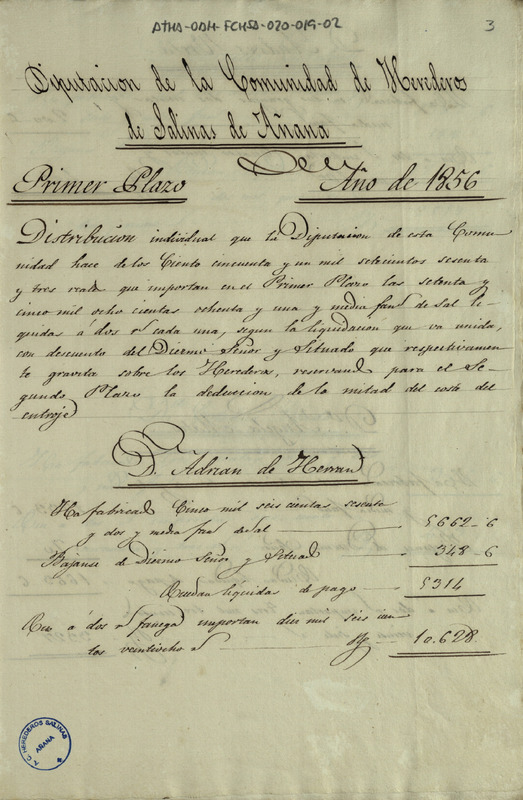 ATHA-DAH-FCHSA-020-019-02
3
Diputacion de la Comunidad de Herederos
de Salinas de Añana
Primer Plazo
Año de 1856
Distribucion individual que la Diputacion de esta Comu-
nidad hace de los Ciento cincuenta y un mil setecientos sesenta
y tres reales que importan en el Primer Plazo las setenta y
cinco mil ocho cientas ochenta y una y media fans de sal li-
quidas á dos rs cada una, segun la liquidacion que va unida,
con descuento del Diezmo Señor y Situado que respectivamen-
te gravita sobre los Herederos, reservando para el Se-
gundo Plazo la deduccion de la mitad del coste del
entroje
D. Adrian de Herran
Ha fabricado Cinco mil seis cientas sesenta
y dos y media fans de sal
5662-6
Bajanse de Diezmo Señor y Situado
348-6
Quedan líquidas de pago
5314
Que á dos rs fanega importan diez mil seis cien
tos veintiocho rs
10.628
C. HEREDEROS SALINAS
AÑANA